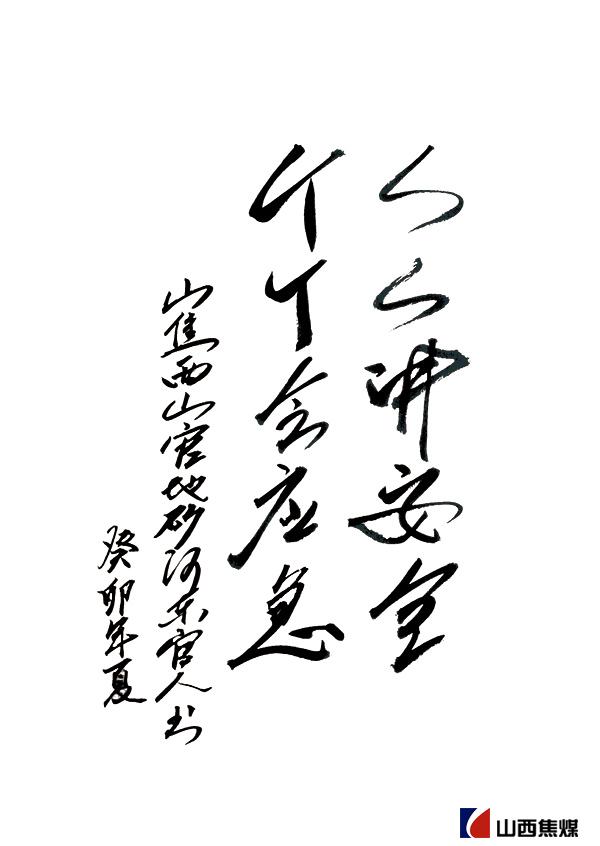 人人讲安全
个个会应急
山焦西山官地矿河东官人书
癸卯年夏
山西焦煤